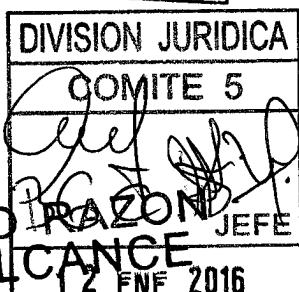 DIVISION JURIDICA
COMITE 5
RAZON
JEFE
LCANCE
2 ENE 2016